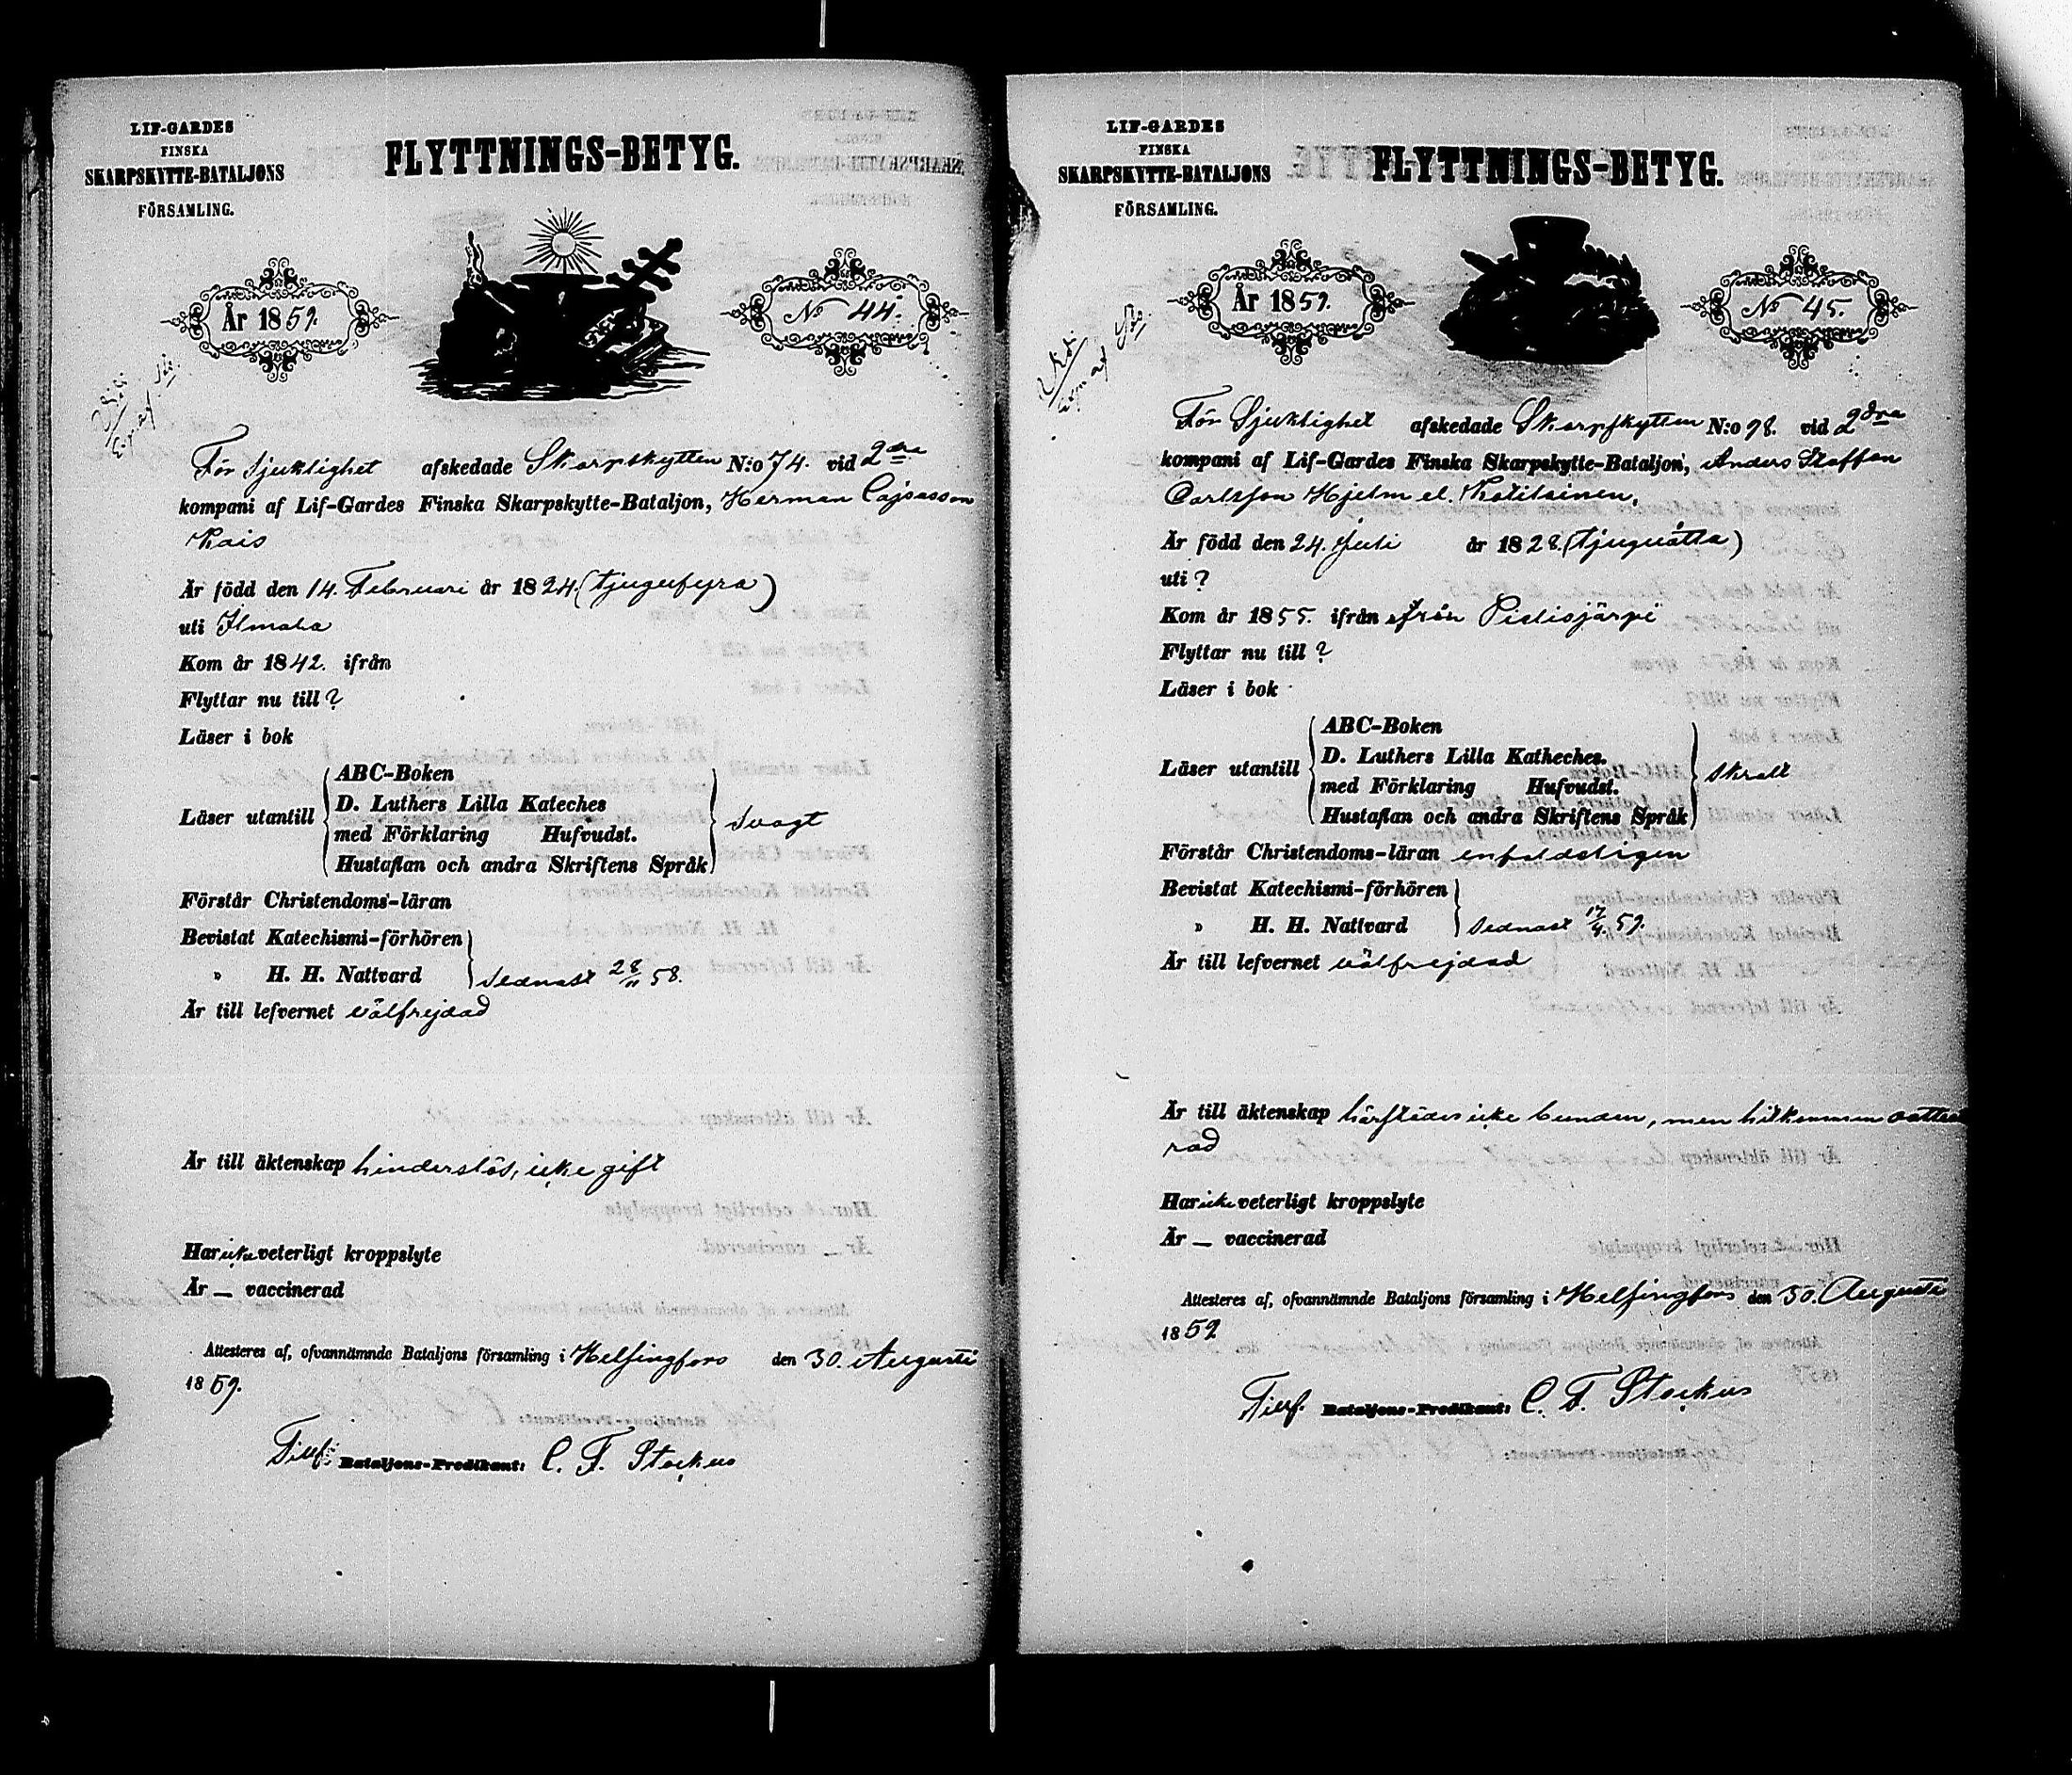 LIF-GARDES
FINSKA
SKARPSKYTTE-BATALJONS
FÖRSAMLING.
FLYTTNINGS-BETYG.
År 1859.
No 44.
För Sjuklighet afskedade Skarpskytten N:o 74. vid 2dra
kompani af Lif-Gardes Finska Skarpskytte-Bataljon, Herman Cajsasson
Kais
Är född den 14. Februari år 1824. (tjugufyra)
uti Ilmola
Kom år 1842. ifrån
Flyttar nu till ?
Läser i bok
Läser utantill
ABC-Boken
D. Luthers Lilla Kateches
med Förklaring Hufvudst.
Hustaflan och andra Skriftens Språk
svagt
Förstår Christendoms-läran
Bevistat Katechismi-förhören
" H. H. Nattvard
sednast 28/11 58.
Är till lefvernet välfrejdad
Är till äktenskap hinderslös, icke gift
Har icke veterligt kroppslyte
Är _ vaccinerad
Attesteres af, ofvannämnde Bataljons församling i Helsingfors den 30. Augusti
1859.
Tillf. Bataljons-Predikant: C. F. Stockus
LIF-GARDES
FINSKA
SKARPSKYTTE-BATALJONS
FÖRSAMLING.
FLYTTNINGS-BETYG.
År 1859.
No 45.
För Sjuklighet afskedade Skarpskytten N:o 98. vid 2dra
kompani af Lif-Gardes Finska Skarpskytte-Bataljon, Anders Staffan
Carlsson Hjelm el. Kolilainen.
Är född den 24. Juli år 1828. (tjuguåtta)
uti ?
Kom år 1855. ifrån från Pidisjärvi
Flyttar nu till ?
Läser i bok
Läser utantill
ABC-Boken
D. Luthers Lilla Katheches.
med Förklaring Hufvudst.
Hustaflan och andra Skriftens Språk
skralt
Förstår Christendoms-läran enfaldeligen
Bevistat Katechismi-förhören
" H. H. Nattvard
sednast 17/4. 59.
Är till lefvernet välfrejdad
Är till äktenskap härstädes icke bunden, men hitkommen
rad
Har icke veterligt kroppslyte
Är _ vaccinerad
Attesteres af, ofvannämnde Bataljons församling i Helsingfors den 30. Augusti
1859
Tillf. Bataljons-Predikant: C. F. Stockus